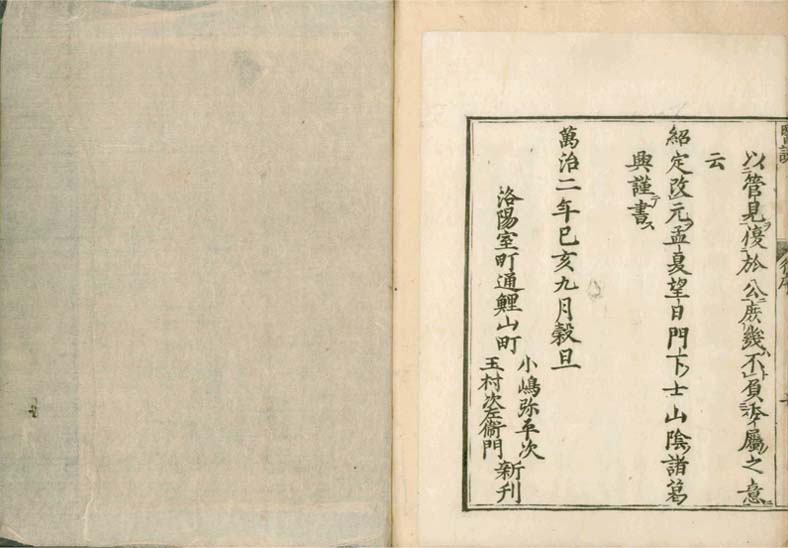 以管見優於公庶幾不負委屬之意
云
紹定改元孟夏望日門下士山陰諸葛
興謹書
萬治二年巳亥九月穀旦
洛陽室町通鯉山町
小嶋弥平次
玉村次左衞門
新刊
醫說
後序